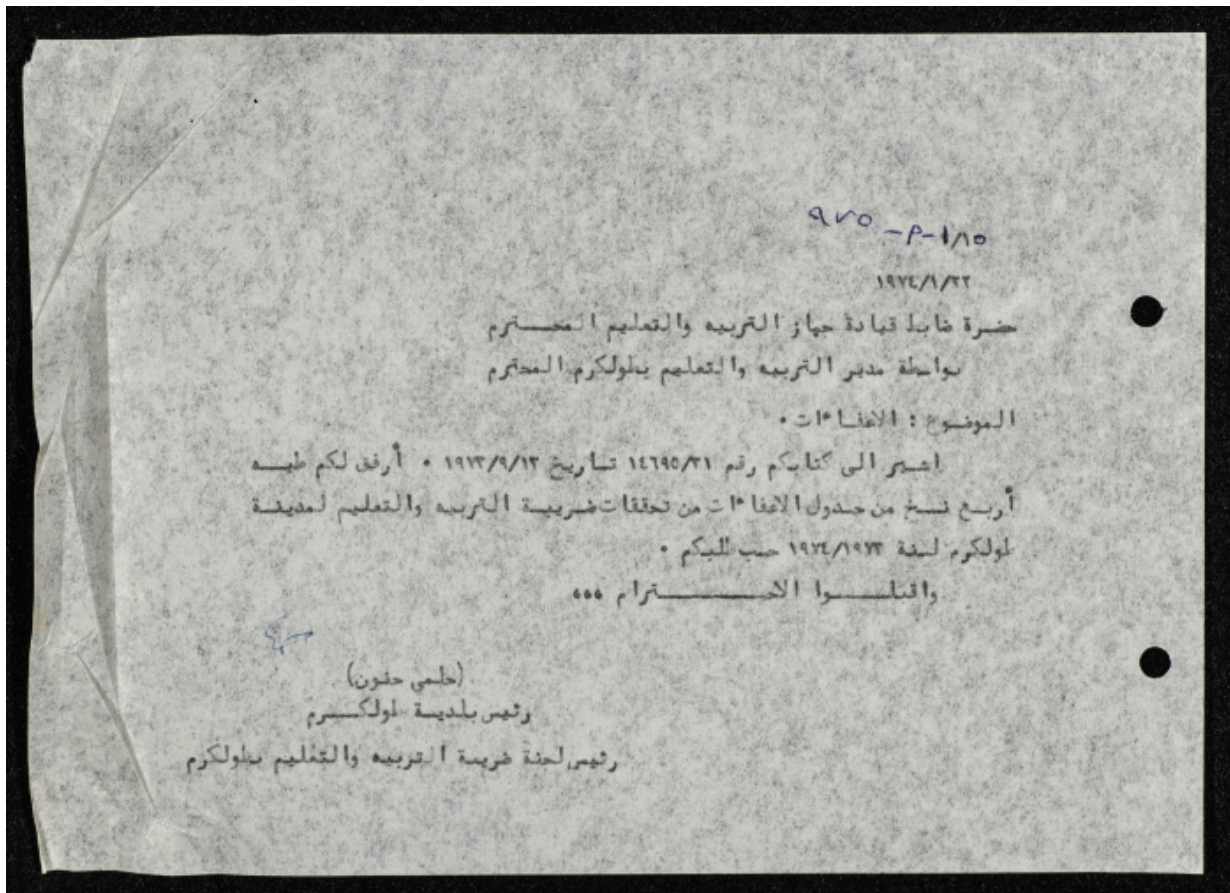 ١/١٥-م-٩٧٥
١٩٧٤/١/٢٢
حضرة ضابط قيادة جهاز التربيه والتعليم المحـــترم
بواسطة مدير التربيه والتعليم بطولكرم المحترم
الموضوع : الاعفاءات ٠
اشير الى كتابكم رقم ١٤٦٩٥/٣١ تاريخ ١٩٧٣/٩/١٢ ٠ أرفق لكم طيــه
أربع نسخ من جدول الاعفاءات من تحققات ضريبة التربيه والتعليم لمدينة
طولكرم لسنة ١٩٧٤/١٩٧٣ حسب طلبكم ٠
واقبلــــوا الاحـــــــترام ،،،
(حلمي حنون)
رئيس بلدية طولكـــرم
رئيس لجنة ضريبة التربيه والتعليم بطولكرم